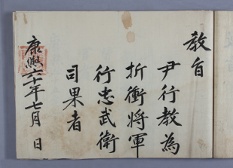 教旨
尹行教為
折衝將軍
行忠武衛
司果者
康熙六十年七月 日